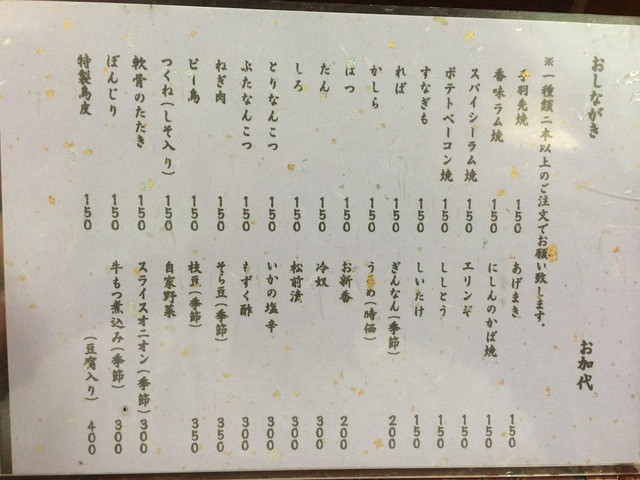 おしながき お加代
※一種類二本以上のご注文でお願い致します。
手羽先焼 150 あげまき 150
香味ラム焼 150 にしんのかば焼 150
スパイシーラム焼 150 エリンギ 150
ポテトベーコン焼 150 ししとう 150
すなぎも 150 しいたけ 150
れば 150 ぎんなん(季節) 200
かしら 150 うるめ(時価)
はつ 150 お新香 200
たん 150 冷奴 300
しろ 150 松前漬 300
とりなんこつ 150 いかの塩辛 300
ぶたなんこつ 150 もずく酢 300
ねぎ肉 150 そら豆(季節) 350
ピー鳥 150 枝豆(季節) 350
つくね(しそ入り) 150 自家野菜
軟骨のたたき 150 スライスオニオン(季節) 300
ぼんじり 150 牛もつ煮込み(季節) 300
特製鳥皮 150 (豆腐入り) 400